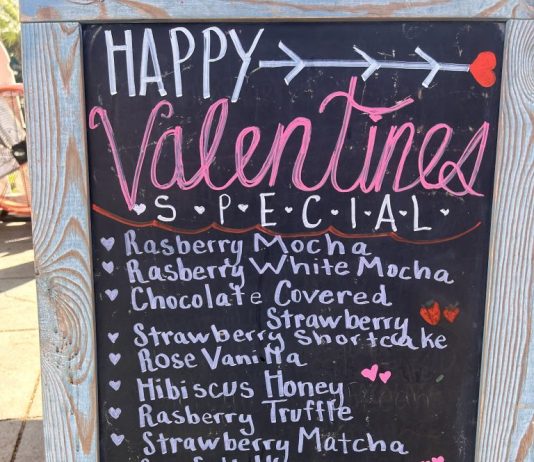 HAPPY
Valentines
SPECIAL
Rasberry Mocha
Rasberry White Mocha
Chocolate Covered
Strawberry
Strawberry Shortcake
Rose Vanilla
Hibiscus Honey
Rasberry Truffle
Strawberry Matcha